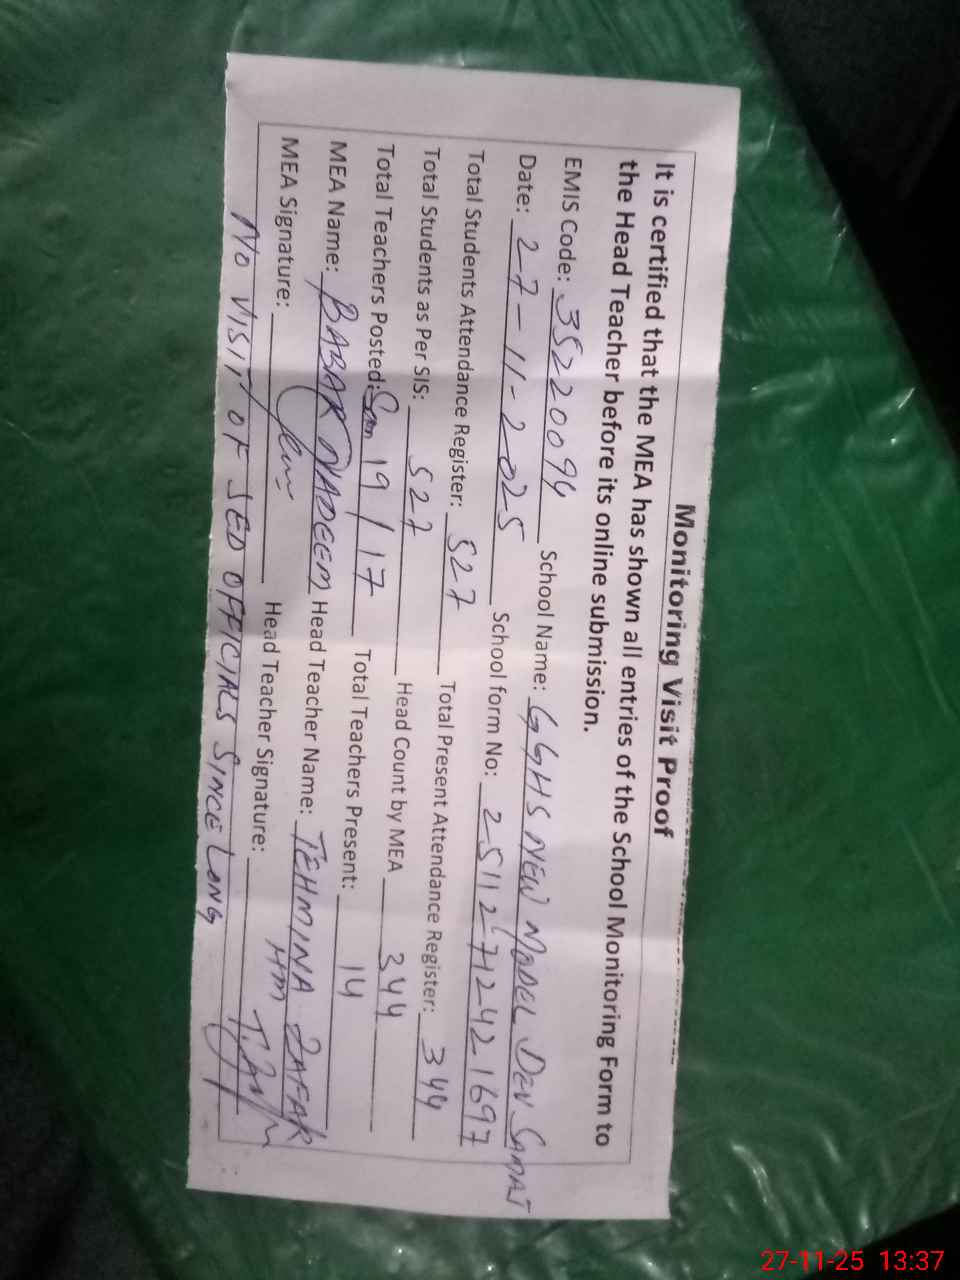 Monitoring Visit Proof
It is certified that the MEA has shown all entries of the School Monitoring Form to
the Head Teacher before its online submission.
EMIS Code: 35220094 School Name: GGHS NEW MODEL DEV SAMAJ
Date: 27-11-2025 School form No: 25112712421697
Total Students Attendance Register: 527 Total Present Attendance Register: 344
Total Students as Per SIS: 527 Head Count by MEA 344
Total Teachers Posted: San 19/17 Total Teachers Present: 14
MEA Name: BABAR NADEEM Head Teacher Name: TEHMINA ZAFAR
MEA Signature: Head Teacher Signature: HM
NO VISIT OF SED OFFICIALS SINCE LONG
27-11-25 13:37